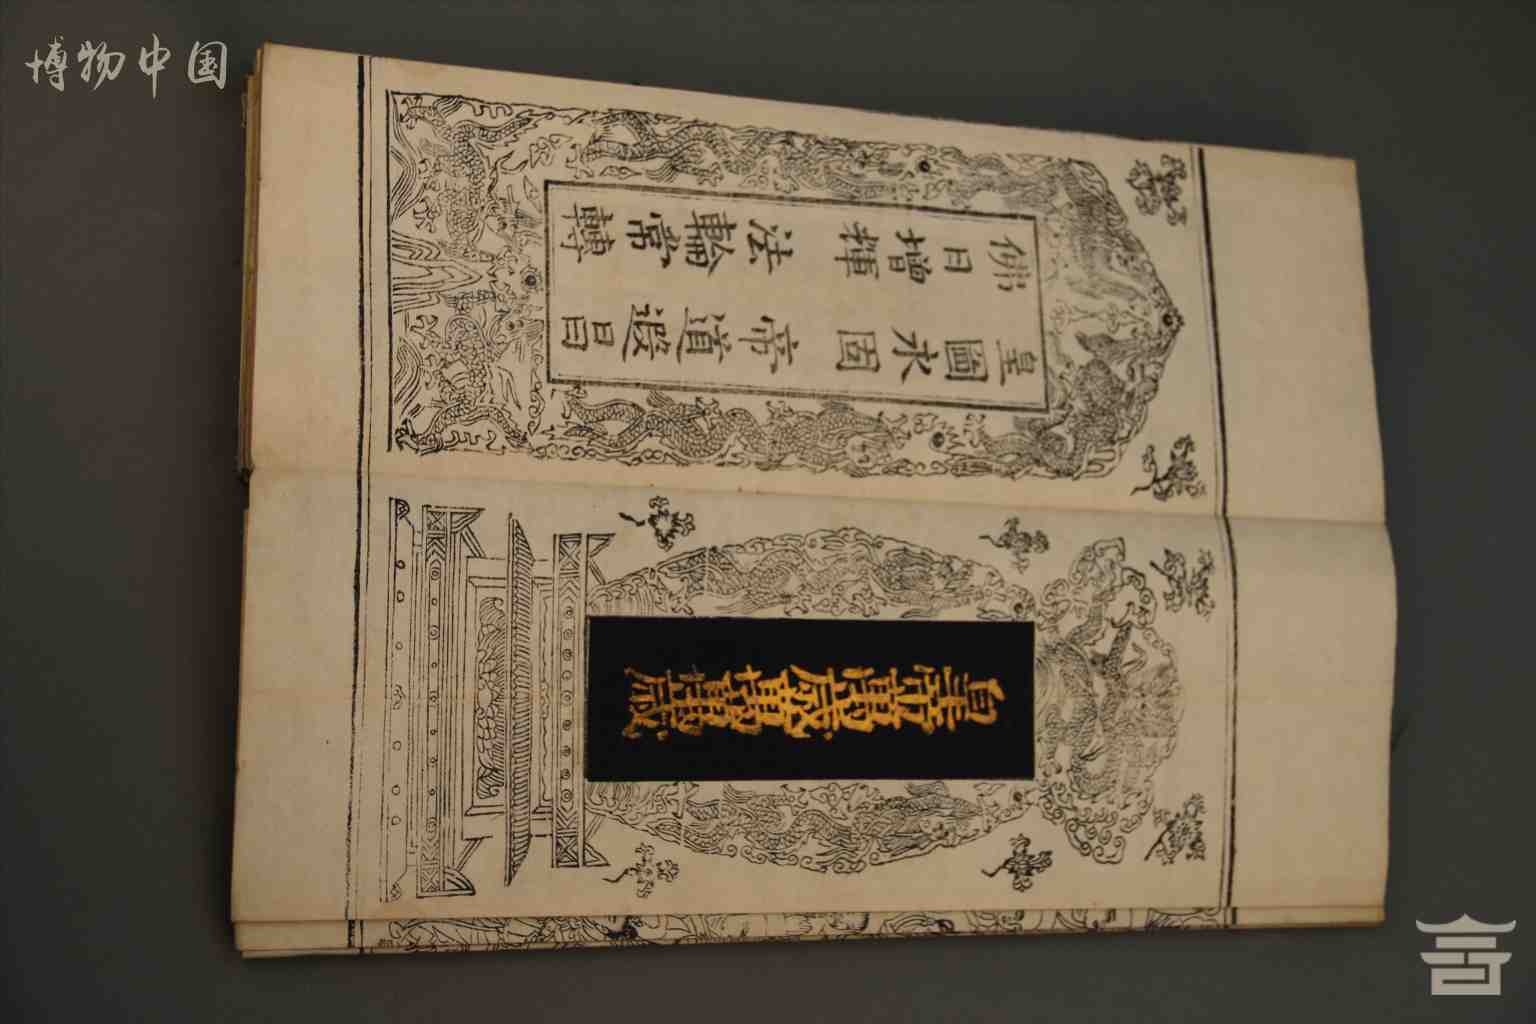 博物中国
皇帝萬歲萬萬歲
皇圖永固 帝道遐昌
佛日增輝 法輪常轉